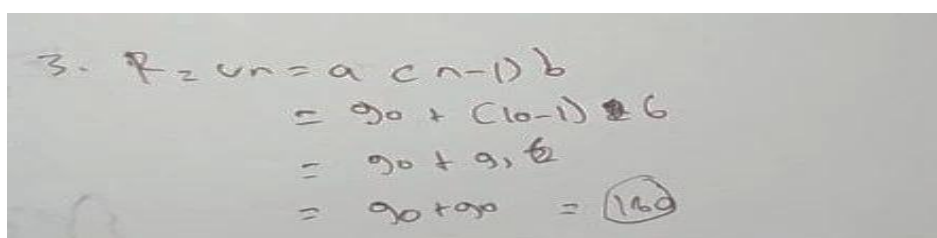 3. R = un = a (n-1) b
= 90 + (10-1) 6
= 90 + 9, 6
= 90 + 90 = 180